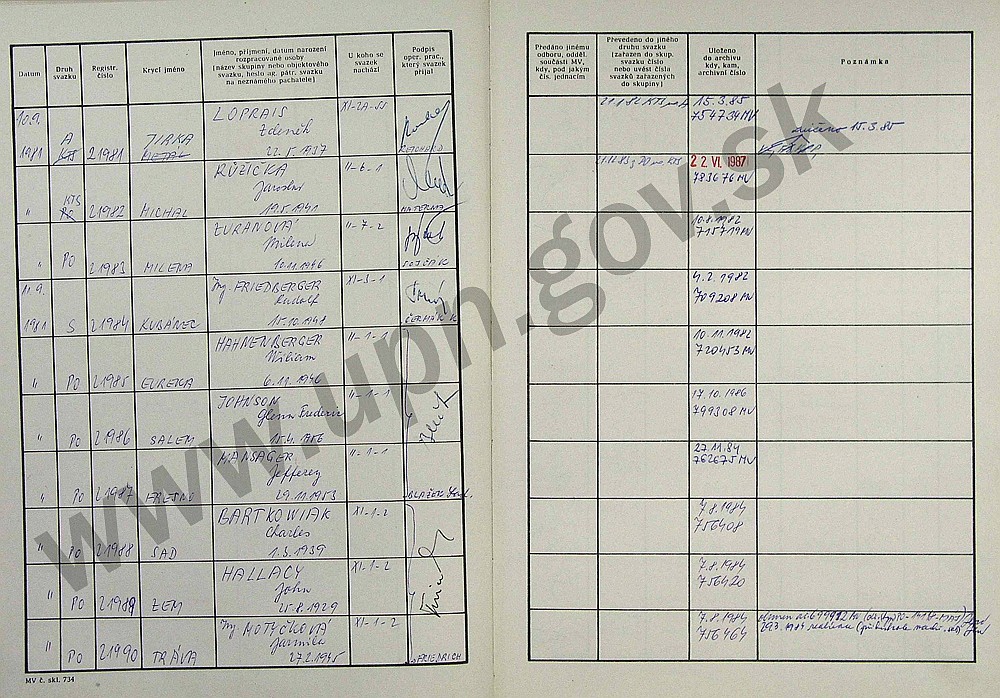 Datum
Druh svazku
Registr. číslo
Krycí jméno
Jméno, příjmení, datum narození
rozpracované osoby
(název skupiny nebo objektového
svazku, heslo ag. pátr. svazku
na neznámého pachatele)
U koho se
svazek
nachází
Podpis
oper. prac.,
který svazek
přijal
Předáno jinému
odboru, odděl.
součásti MV,
kdy, pod jakým
čís. jednacím
Převedeno do jiného
druhu svazku
(zařazen do skup.
svazku číslo
nebo uvést čísla
svazků zařazených
do skupiny)
Uloženo
do archivu
kdy, kam,
archivní číslo
Poznámka
10.9. LOPRAIS XI-2A-SS 15.3.85
A Zdeněk 754734 MV
1981 KTS 21981 JIRKA 22.5.1937 zničeno 15.3.85
METAL REICHARD
RŮŽIČKA II-6-1 22 VI. 1987
KTS Jaroslav 783676 MV
" Po 21982 MICHAL 19.5.1941 MATERNA
ZURANOVÁ II-7-2 10.8.1982
Milena 715719 MV
" Po 21983 MILENA 10.11.1946
11.9. Ing. FRIEDBERGER XI-3-1 4.2.1982
Rudolf 709208 MV
1981 S 21984 KUBÁNEC 15.10.1948 ČERMÁK K
HAHNENBERGER II-1-1 10.11.1982
Wiliam 720453 MV
" Po 21985 EUREKA 6.11.1946
JOHNSON II-1-1 17.10.1986
Glenn Frederic 799308 MV
" Po 21986 SALEM 15.4.1956
MANSAGER II-1-1 27.11.84
Jefferey 762675 MV
" Po 21987 FRESNO 29.11.1953 BLAŽEK
BARTKOWIAK XI-1-2 7.8.1984
Charles 756408
" Po 21988 SAD 1.3.1939
HALLACY XI-1-2 7.8.1984
John 756420
" Po 21989 ZEM 25.8.1929
Ing. MOTYČKOVÁ XI-1-2 7.8.1984
Jarmila 756464
" Po 21990 TRÁVA 27.2.1945 FRIEDRICH
MV č. skl. 734
www.upn.gov.sk